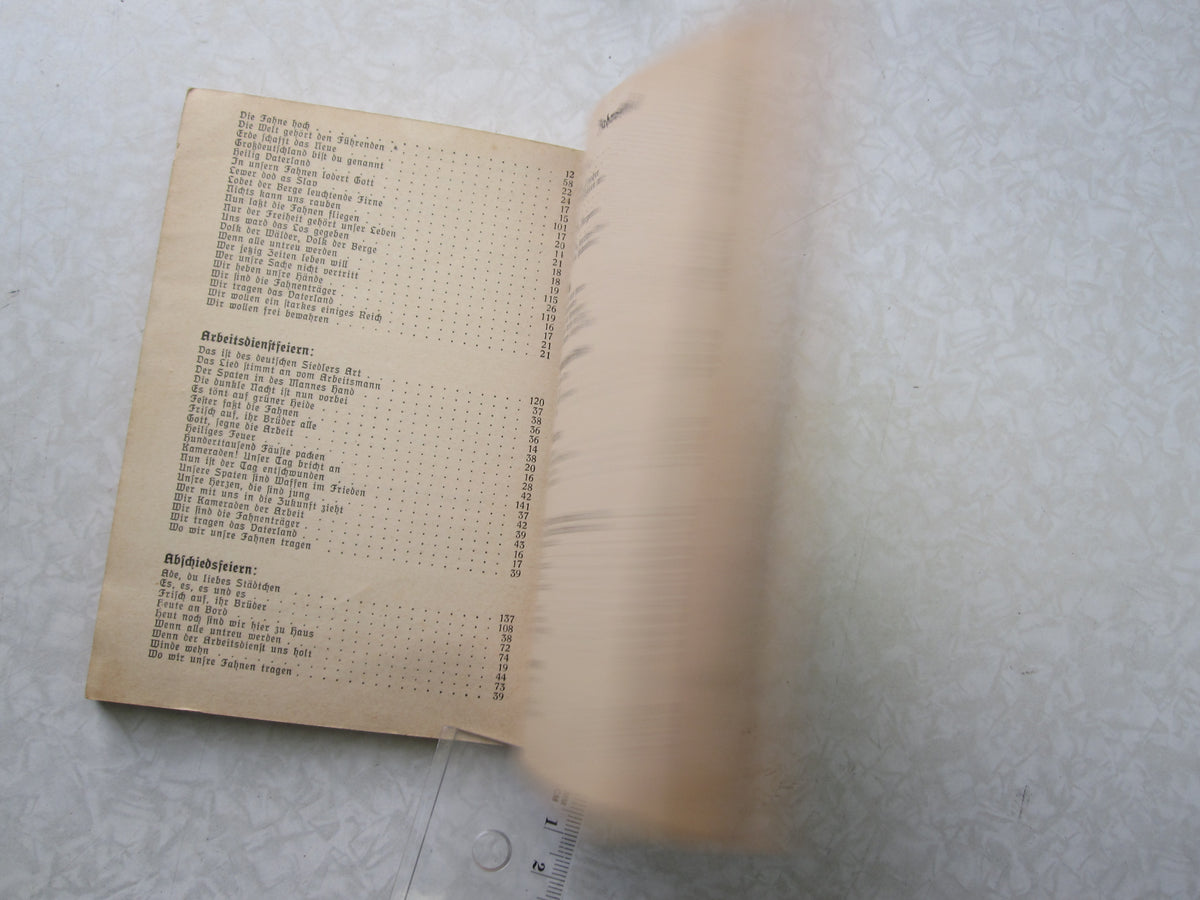 Die Fahne hoch . . . 12
Die Welt gehört den Führenden . . . 58
Erde schafft das Neue . . . 22
Großdeutschland bist du genannt . . . 24
Heilig Vaterland . . . 17
In unsern Fahnen lodert Gott . . . 15
Lewer dod as Slav . . . 101
Lobet der Berge leuchtende Firne . . . 17
Nichts kann uns rauben . . . 20
Nun laßt die Fahnen fliegen . . . 11
Nur der Freiheit gehört unser Leben . . . 21
Uns ward das Los gegeben . . . 18
Volk der Wälder, Volk der Berge . . . 18
Wenn alle untreu werden . . . 19
Wer jetzig Zeiten leben will . . . 115
Wer unsre Sache nicht vertritt . . . 26
Wir heben unsre Hände . . . 119
Wir sind die Fahnenträger . . . 16
Wir tragen das Vaterland . . . 17
Wir wollen ein starkes einiges Reich . . . 21
Wir wollen frei bewahren . . . 21
Arbeitsdienstfeiern:
Das ist des deutschen Siedlers Art . . . 120
Das Lied stimmt an vom Arbeitsmann . . . 37
Der Spaten in des Mannes Hand . . . 38
Die dunkle Nacht ist nun vorbei . . . 36
Es tönt auf grüner Heide . . . 36
Fester faßt die Fahnen . . . 14
Frisch auf, ihr Brüder alle . . . 38
Gott, segne die Arbeit . . . 20
Heiliges Feuer . . . 16
Hunderttausend Fäuste packen . . . 28
Kameraden! Unser Tag bricht an . . . 42
Nun ist der Tag entschwunden . . . 141
Unsere Spaten sind Waffen im Frieden . . . 37
Unsre Herzen, die sind jung . . . 42
Wer mit uns in die Zukunft zieht . . . 39
Wir Kameraden der Arbeit . . . 43
Wir sind die Fahnenträger . . . 16
Wir tragen das Vaterland . . . 17
Wo wir unsre Fahnen tragen . . . 39
Abschiedsfeiern:
Ade, du liebes Städtchen . . . 137
Es, es, es und es . . . 108
Frisch auf, ihr Brüder . . . 38
Heute an Bord . . . 72
Heut noch sind wir hier zu Haus . . . 74
Wenn alle untreu werden . . . 19
Wenn der Arbeitsdienst uns holt . . . 44
Winde wehn . . . 73
Wo wir unsre Fahnen tragen . . . 39
CM
1
2